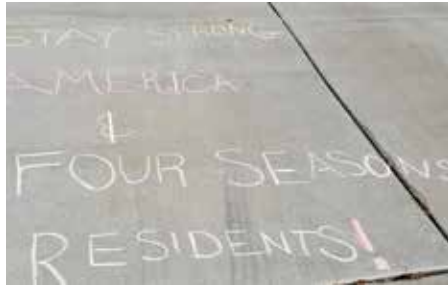 STAY STRONG
AMERICA
&
FOUR SEASONS
RESIDENTS!